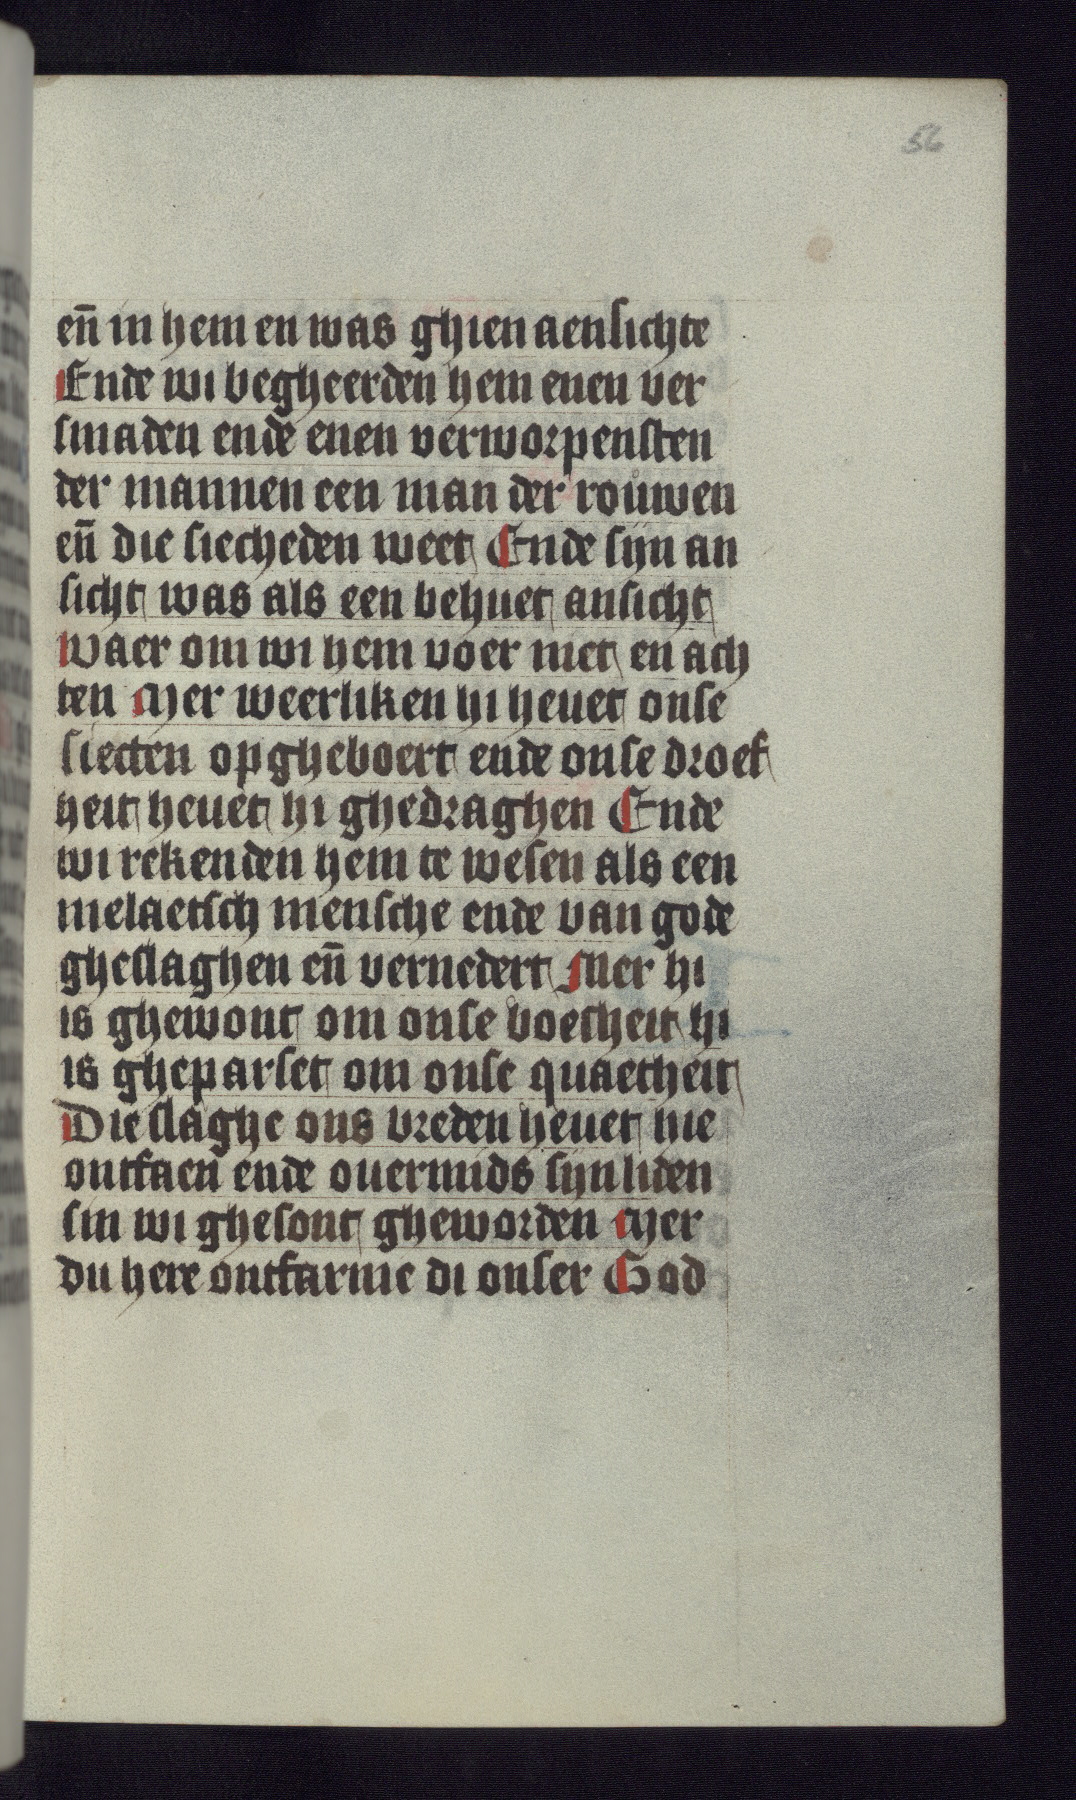 56
en̄ in hem en was ghien aensichte
Ende wi begheerden hem enen ver
smaden ende enen verworpensten
der mannen een man der rouwen
en̄ die siecheden weet Ende sijn an
sicht was als een behuet ansicht
Waer om wi hem voer niet en ach
ten Mer weerliken hi heuet onse
siecten op gheboert ende onse droef
heit heuet hi ghedraghen Ende
wi rekenden hem te wesen als een
melaetsch mensche ende van gode
gheslaghen en̄ vernedert Mer hi
is ghewont om onse boesheit hi
is gheparset om onse quaetheit
Die slaghe ons vreden heuet hie
ontfaen ende ouermids sijn liden
sin wi ghesont gheworden Mer
du here ontfarme di onser God